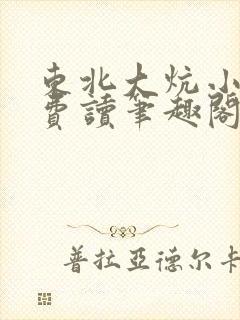 東北大炕小
費讀筆趣閣
普拉亞德尔卡